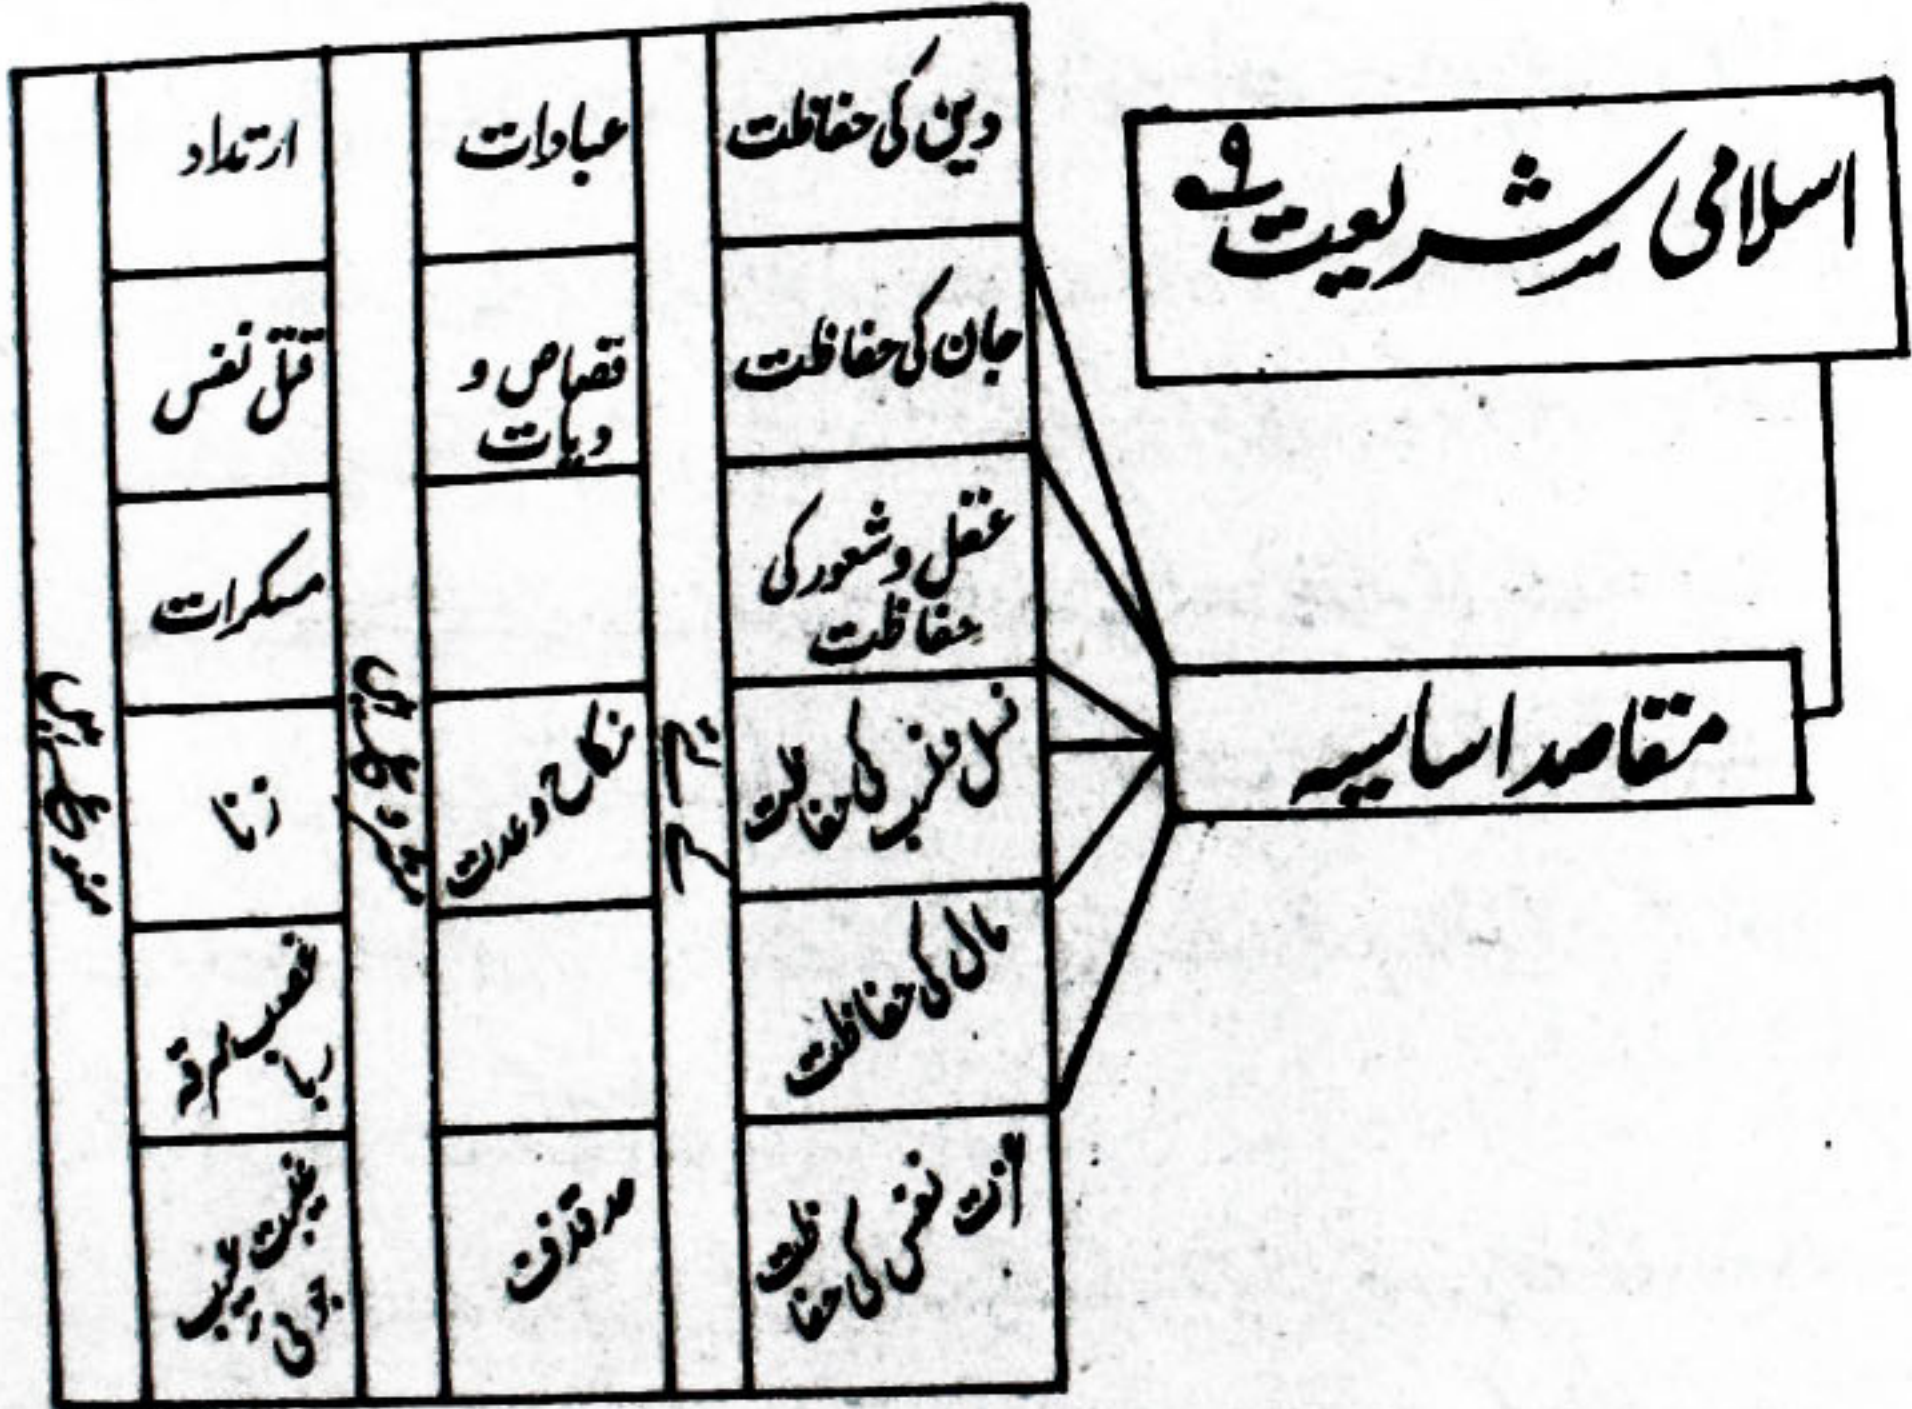 اسلامی شریعت
مقاصد اساسیہ
دین کی حفاظت
جان کی حفاظت
عقل و شعور کی
حفاظت
نسل و نسب کی حفاظت
مال کی حفاظت
عزت نفس کی حفاظت
عبادات
قصاص و
دیات
نکاح و عدت
حد قذف
ارتداد
قتل نفس
مسکرات
زنا
غصب سرقہ
ربا
غیبت عیب
جوئی